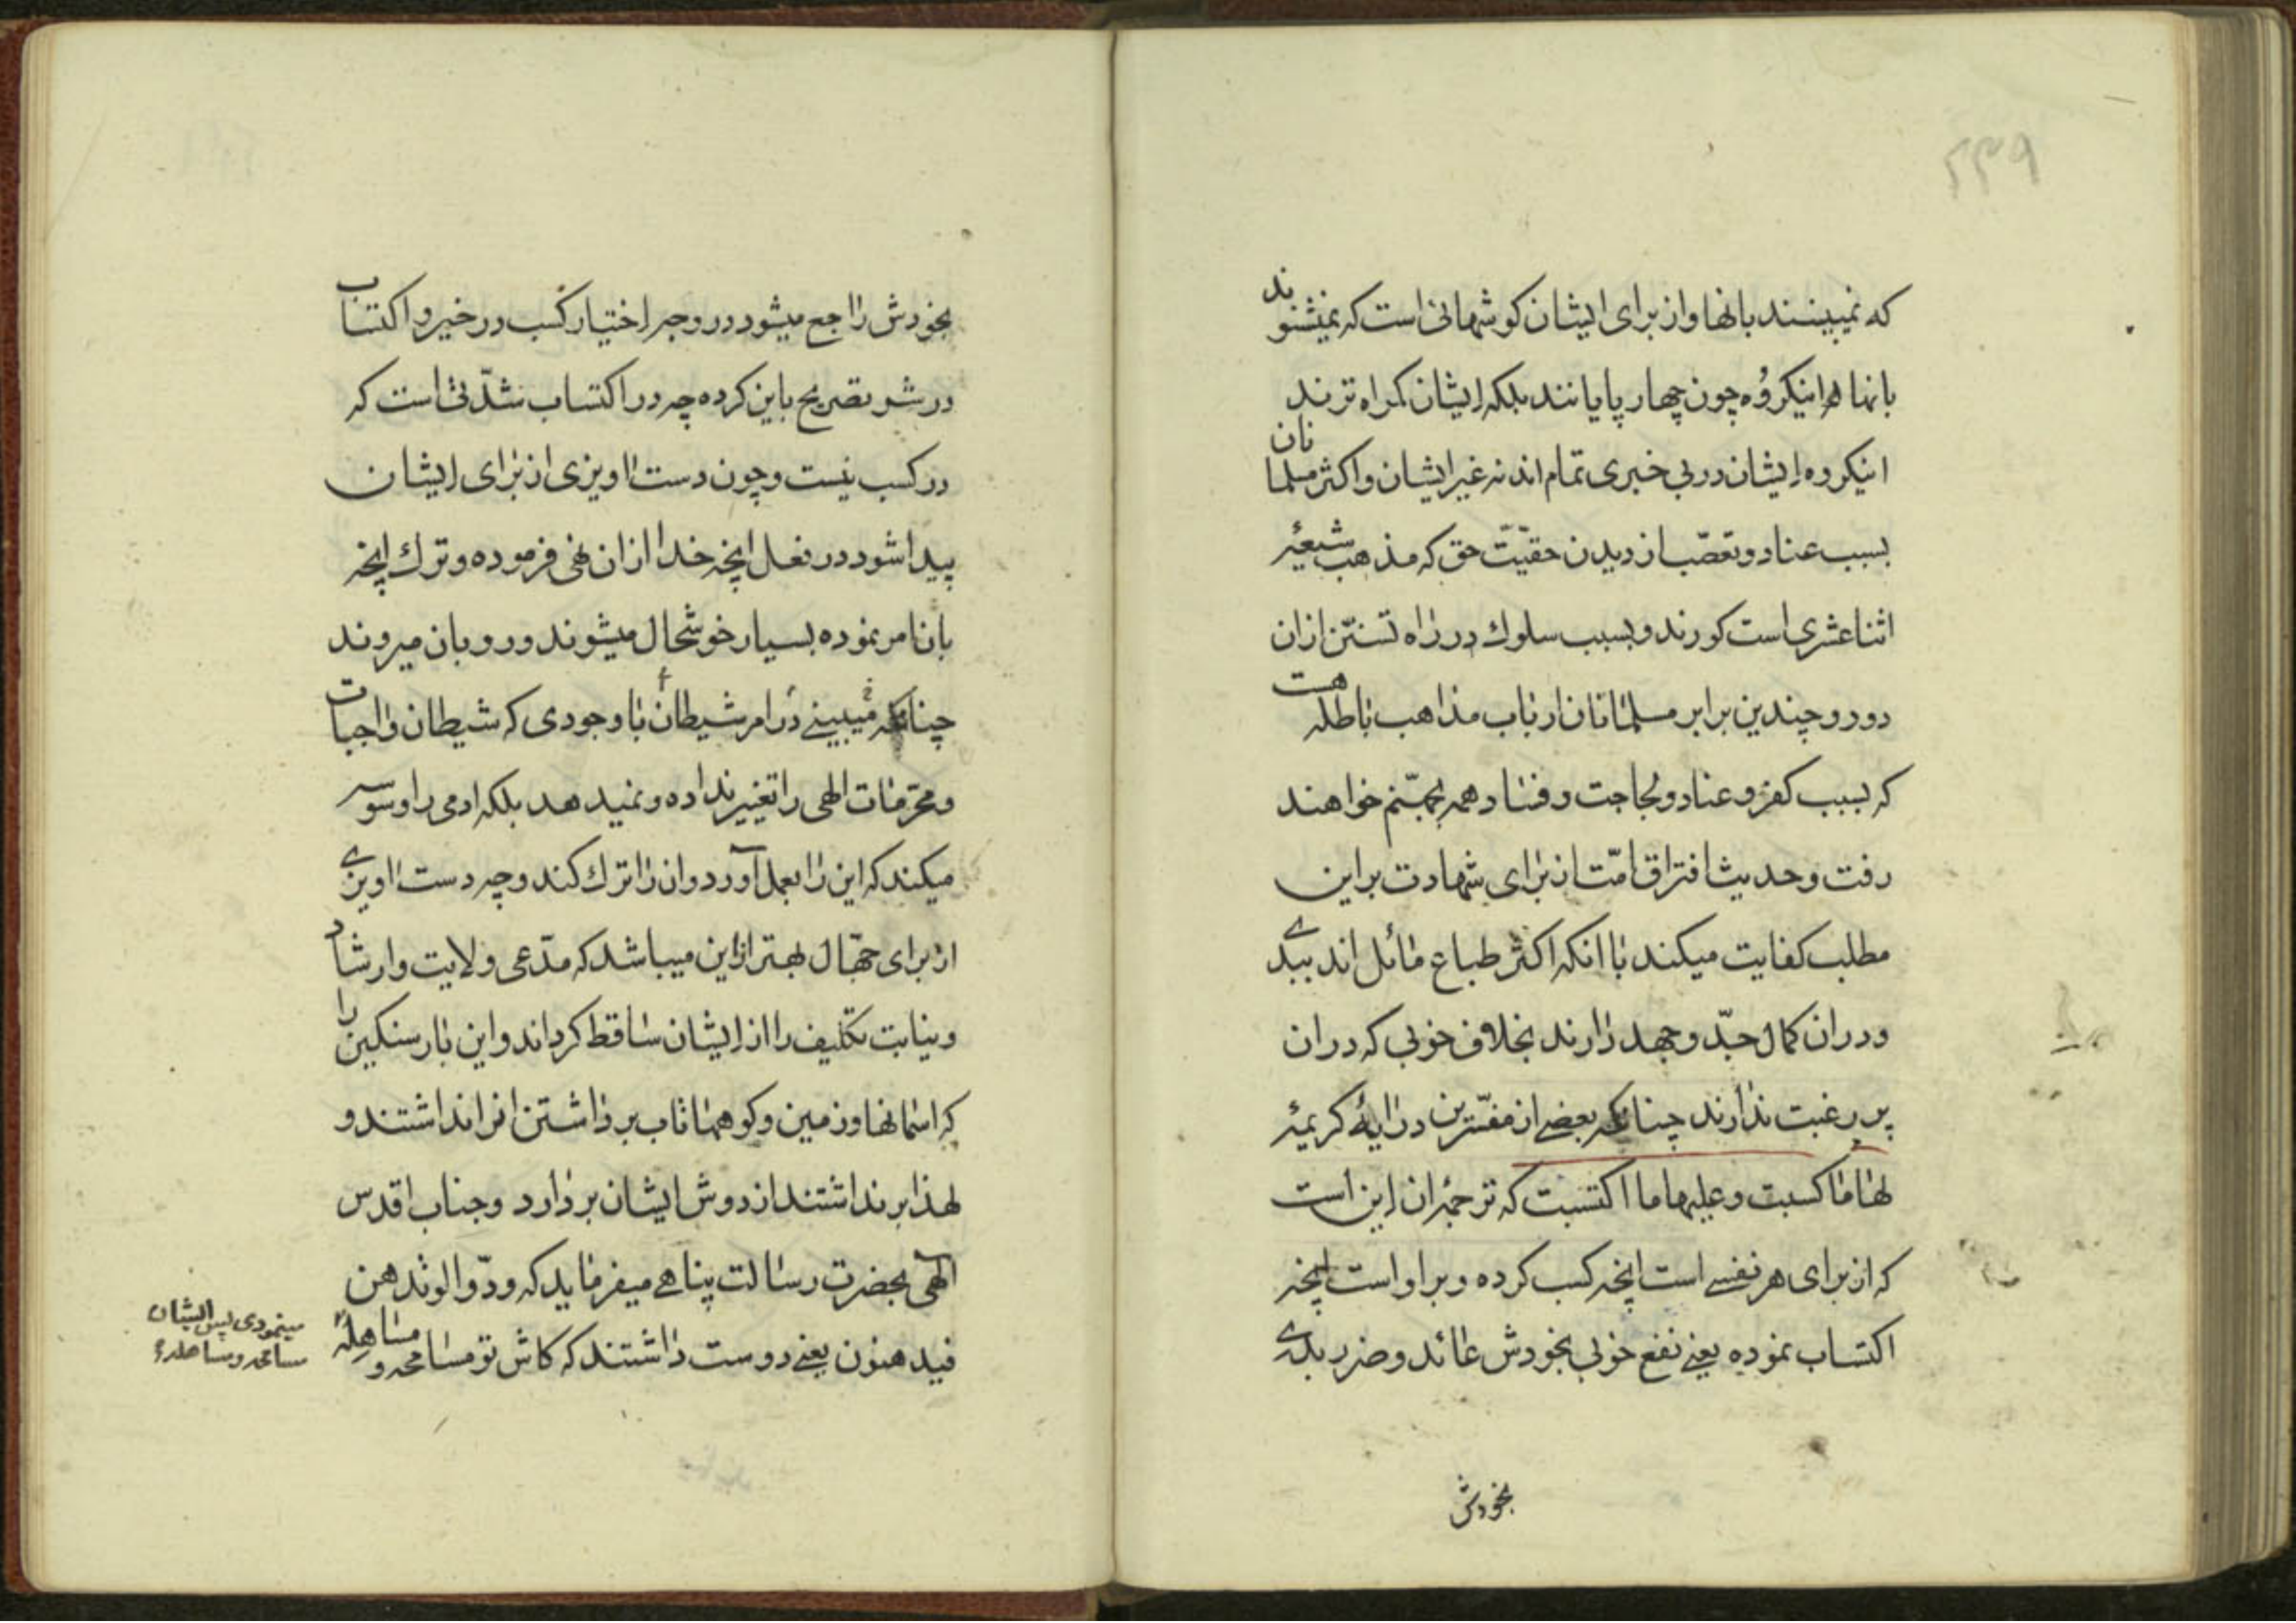 ۲۳۹
که نمیبینند بانها و از برای ایشان کوشهائی است که نمیشنوند
بانها اینکروه چون چهار پایانند بلکه ایشان کمراه ترند
اینکروه ایشان در بی خبری تمام اند نه غیر ایشان و اکثر مسلمانان
بسبب عناد و تعصّب از دیدن حقیّت حق که مذهب شیعهٔ
اثنا عشری است کورند و بسبب سلوك در راه تسنّن ازان
دور و چندین برابر مسلمانان ارباب مذاهب باطله هست
که بسبب کفر و عناد و لجاجت و فساد همه بجهنّم خواهند
رفت و حدیث افتراق امّت از برای شهادت براین
مطلب کفایت میکند با انکه اکثر طباع مائل اند ببدے
و دران کمال جدّ و جهد دارند بخلاف خوبی که دران
پر رغبت ندارند چنانکه بعضے از مفسّرین در ایهٔ کریمهٔ
لها ما کسبت و علیها ما اکتسبت که ترجمهٔ ان این است
که از برای هر نفسے است انچه کسب کرده و بر او است انچه
اکتساب نموده یعنے نفع خوبی بخودش عائد و ضرر بدے
بخودش
بخودش راجع میشود در وجه اختیار کسب در خیر و اکتساب
در شر تصریح باین کرده چه در اکتساب شدّتی است که
در کسب نیست و چون دست اویزی از برای ایشان
پیدا شود در فعل انچه خدا ازان نهی فرموده و ترك انچه
بان امر نموده بسیار خوشحال میشوند و رو بان میروند
چنانکه میبینے در امر شیطان با وجودی که شیطان واجبات
و محرّمات الهی را تغییر نداده و نمیدهد بلکه ادمی را وسوسه
میکند که این را بعمل آورد و ان را ترك کند و چه دست اویزے
از برای جهّال بهتر ازاین میباشد که مدّعی ولایت و ارشاد
و نیابت تکلیف را از ایشان ساقط کرداند و این بار سنکین را
که اسمانها و زمین و کوهها تاب برداشتن انرا نداشتند و
لهذا برنداشتند از دوش ایشان بردارد و جناب اقدس
الهی بحضرت رسالت پناهے میفرماید که ودّوا لو تدهن
فیدهنون یعنے دوست داشتند که کاش تو مسامحه و مساهله
مینمودی پس ایشان
مسامحه و مساهلهٔ